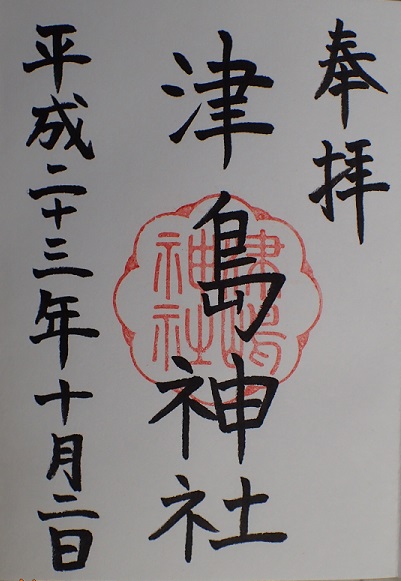 奉拝
津島神社
津嶋
神社
平成二十三年十月二日